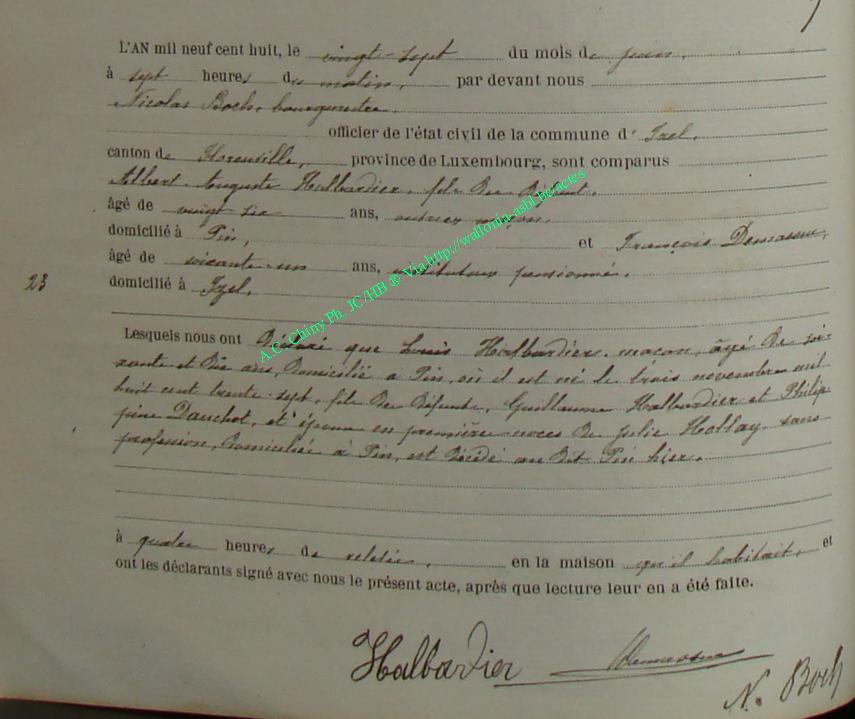 L'AN mil neuf cent huit, le vingt-sept du mois de juin,
à sept heures du matin, par devant nous
Nicolas Boch, bourgmestre,
officier de l'état civil de la commune d' Izel,
canton de Florenville, province de Luxembourg, sont comparus
Albert Auguste Halbardier, fils du défunt,
âgé de vingt-six ans, maçon,
domicilié à Pin, et François
âgé de soixante-un ans, instituteur pensionné,
23 domicilié à Izel,
Lesquels nous ont Déclaré que Louis Halbardier, maçon, âgé de soi-
xante et dix ans, domicilié à Pin, où il est né le trois novembre mil
huit cent trente-sept, fils des défunts, Guillaume Halbardier et Philip
pine Dauchot, et époux en première noces de Julie Hollay, sans
profession, domiciliée à Pin, est décédé au dit Pin hier,
à quatre heures de relevée, en la maison qu'il habitait, et
ont les déclarants signé avec nous le présent acte, après que lecture leur en a été faite.
Halbardier
N. Boch
A.C. Chiny Ph. JC/HB ® Via http://wallonia-asbl.be/actes